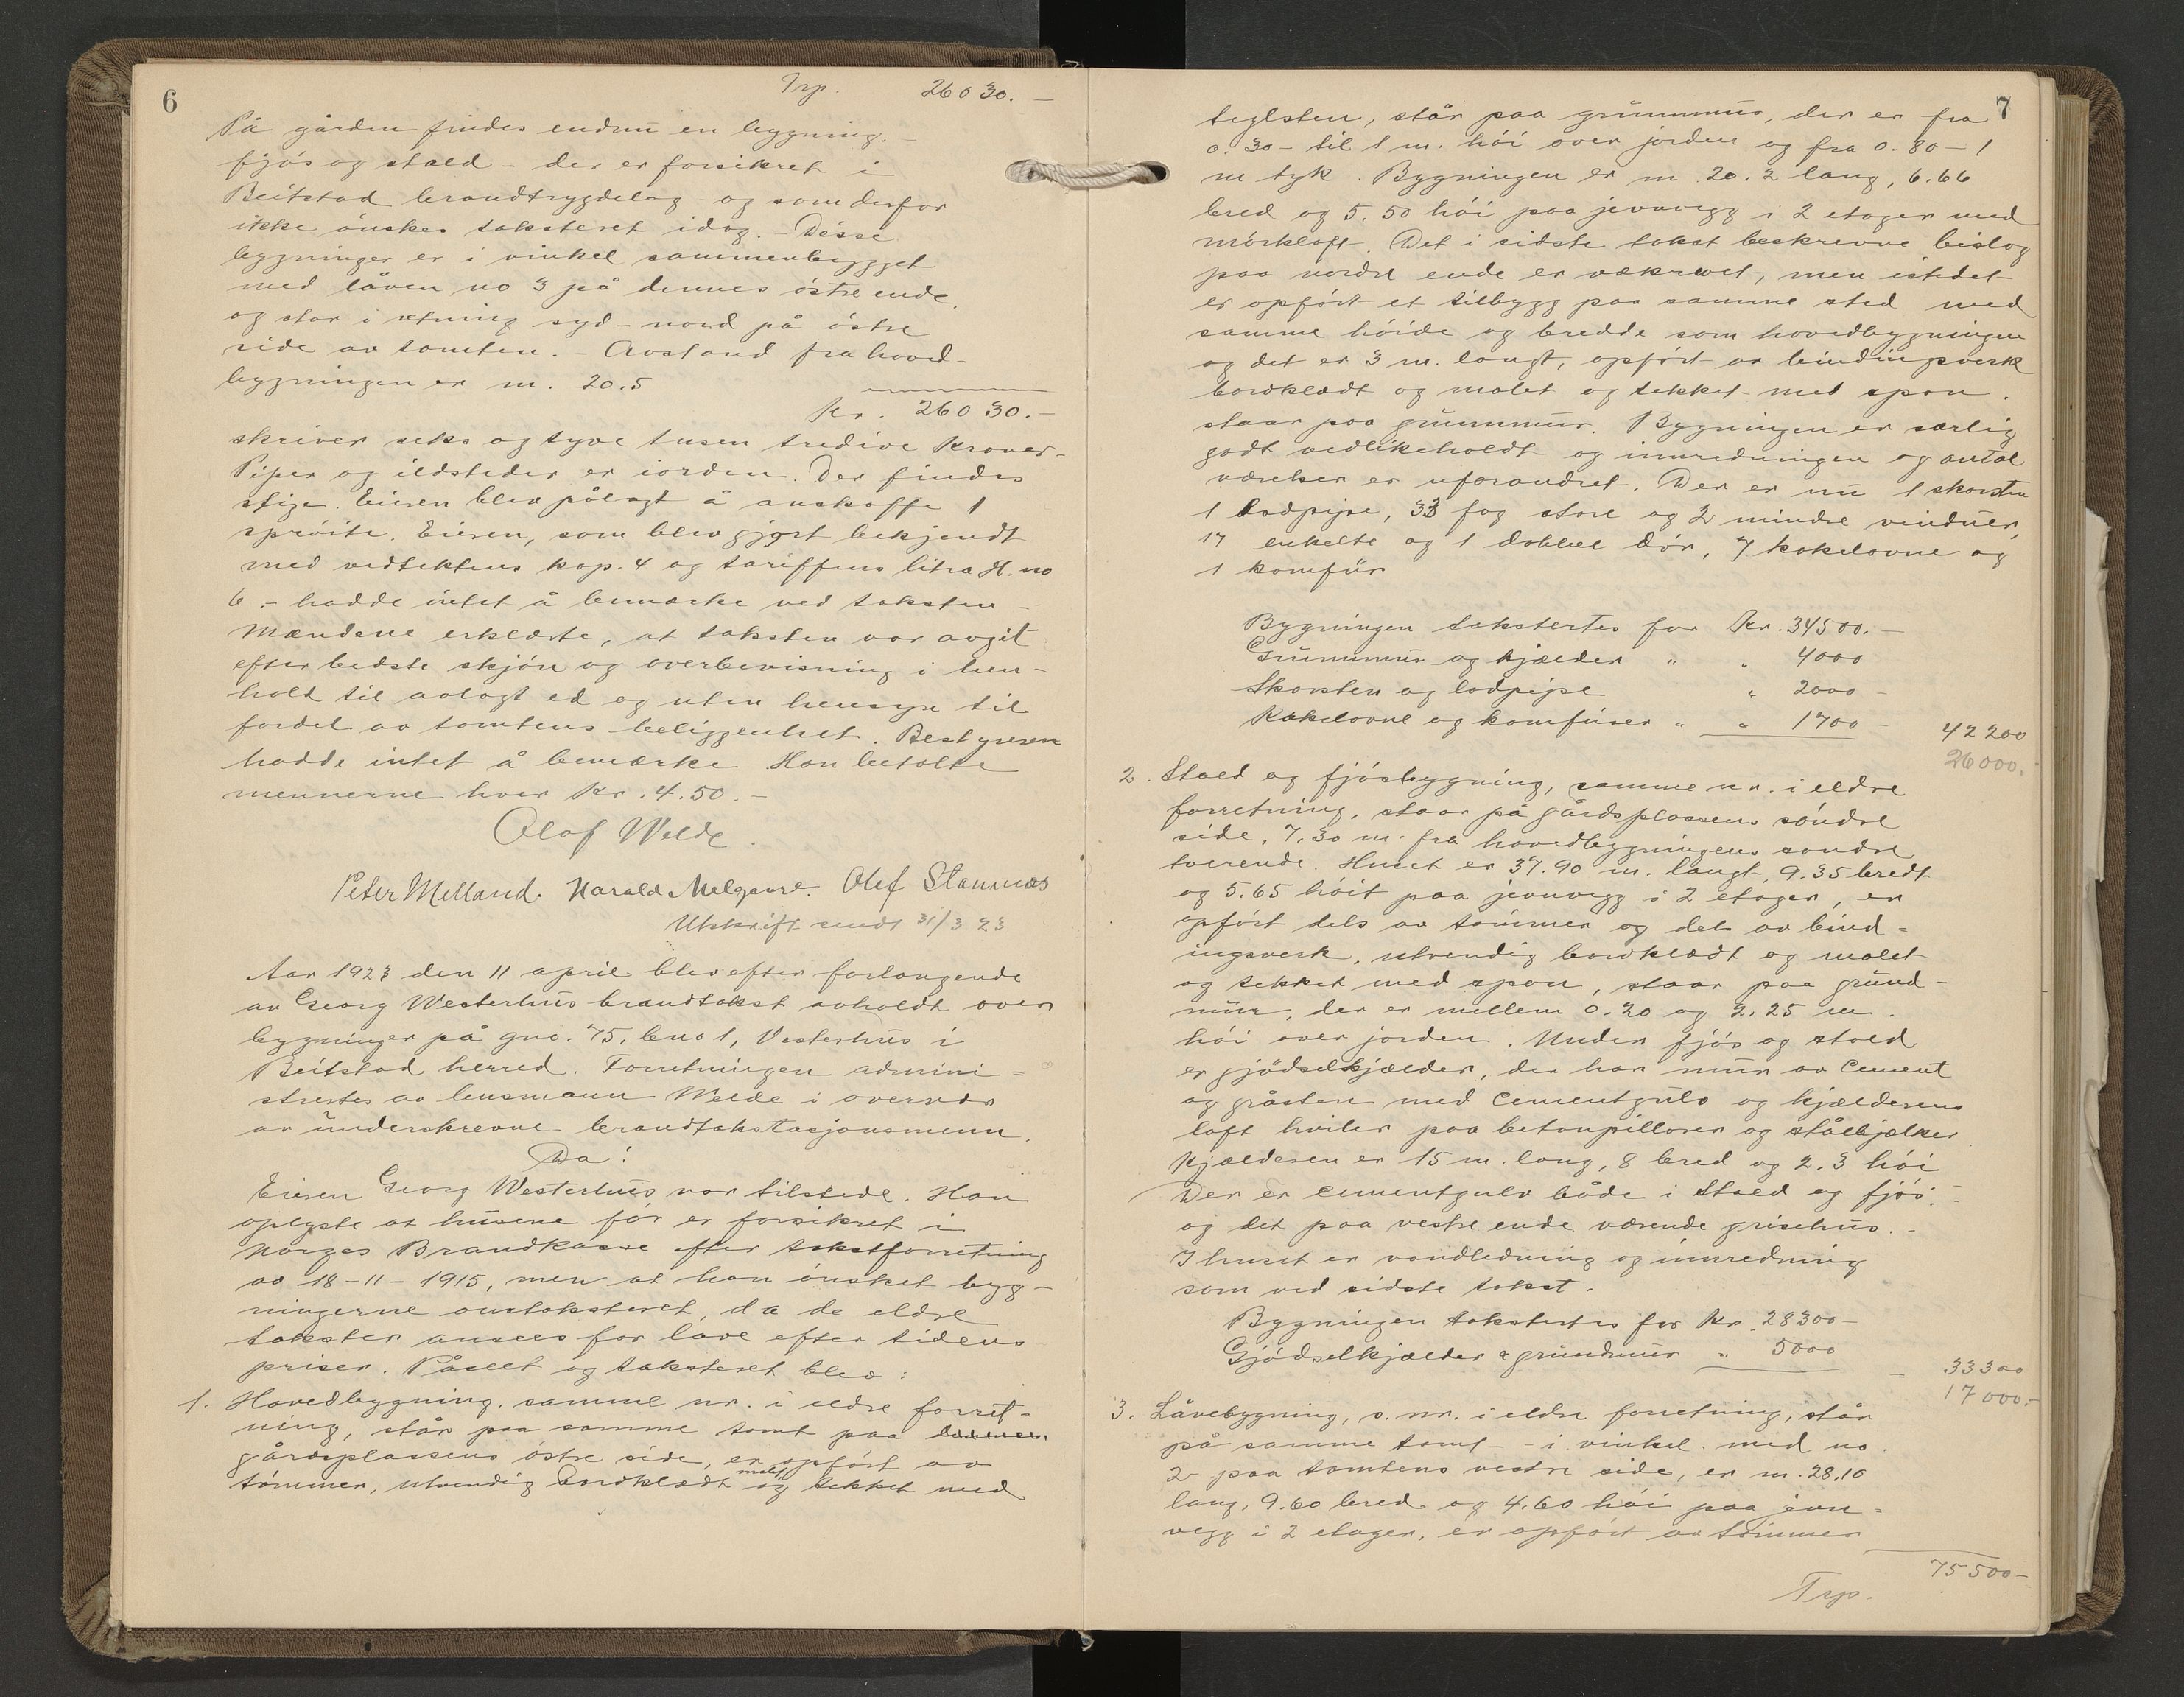 6
Trp. 26030.-
På gården findes endnu en bygning. -
fjös og stald - der er forsikret i
Beitstad brandtrygdelag og som derfor
ikke önskes taksteret idag. - Disse
bygninger er i vinkel sammenbygget
med låven no 3 på dennes östre ende,
og star i retning syd - nord på östre
side av tomten. - Avstand fra hoved-
bygningen er m. 20.5
Kr. 26030.-
skriver seks og tyve tusen tredive kroner -
Piper og ildsteder er iorden. Der findes
stige. Eieren blev pålagt å anskaffe 1
spröite. Eieren, som blev gjort bekjendt
med vedtektens kap. 4 og tariffens litra H. no
6. - hadde intet å bemærke ved taksten -
Mændene erklærte, at taksten var avgit
efter bedste skjön og overbevisning i hen-
hold til avlagt ed og uten hensyn til
fordel av tomtens beliggenhet. Bestyreren
hadde intet å bemærke Han betalte
mennerne hver kr. 4.50. -
Olaf Welde.
Peter Melland. Harald Melgaard. Olef Stamnes
Utskrift sendt 31/3 23
Aar 1923 den 11 april blev efter forlangende
av Georg Westerhus brandtakst avholdt over
bygninger på gno. 75, bno 1, Vesterhus i
Beitstad herred. Forretningen admini=
strertes av lensmann Welde i overvær
av underskrevne brandtakstasjonsmenn.
Da!
Eieren Georg Westerhus var tilstede. Han
oplyste at husene för er forsikret i
Norges Brandkasse efter takstforretning
av 18-11-1915, men at han önsket byg-
ningerne omtaksteret, da de eldre
takster ansees for lave efter tidens
priser. Påseet og taksteret blev:
1. Hovedbygning, samme nr. i eldre forret-
ning, står paa samme tomt paa
gårdsplassens östre side, er opfört av
tömmer, utvendig bordklædt malt og tekket med
7
teglsten, står paa grunnmur, der er fra
0.30 - til 1 m. höi over jorden og fra 0.80 - 1
m tyk. Bygningen er m. 20.2 lang, 6.66
bred og 5.50 höi paa jevnvegg i 2 etager med
mörkloft. Det i sidste takst beskrevne bislag
paa nordre ende er væk revet, men istedet
er opfört et tilbygg paa samme sted med
samme höide og bredde som hovedbygningen
og det er 3 m. langt, opfört av bindingsverk
bordklædt og malet og tekket med spon.
staar paa grunnmur. Bygningen er særlig
godt vedlikeholdt og innredningen og antal
værelser er uforandret. Der er nu 1 skorsten
1 lodpipe, 33 fag store og 2 mindre vinduer,
17 enkelte og 1 dobbel dör, 7 kakelovne og
1 komfür
Bygningen takstertes for Kr. 34500.-
Grunnmur og kjælder " " 4000
Skorsten og lodpipe " 2000 -
Kakelovne og komfürer " " 1700 -
42200
26000.
2. Stald og fjösbygning, samme nr. i eldre
forretning, staar på gårdsplassens söndre
side, 7.30 m. fra hovedbygningens söndre
tverende. Huset er 37.90 m. langt, 9.35 bredt
og 5.65 höit paa jevnvegg i 2 etager, er
opfört dels av tömmer og dels av bind=
ingsverk, utvendig bordklædt og malet
og tekket med spon, staar paa grund-
mur, der er mellem 0.20 og 2.25 m.
höi over jorden. Under fjös og stald
er gjödselkjælder, der har mur av Cement
og gråsten med Cementgulv og kjælderens
loft hviler paa betonpillarer og stålbjælker
Kjælderen er 15 m. lang, 8 bred og 2.3 höi
Der er cementgulv både i Stald og fjös. -
og det paa vestre ende værende grisehus. -
I huset er vandledning og innredning
som ved sidste takst.
Bygningen takstertes for Kr. 28300 -
Gjödselkjælder & grundmur " 5000
33300
17000.-
3. Låvebygning, s. nr. i eldre forretning, står
på samme tomt - i vinkel. med no.
2 paa tomtens vestre side, er m. 28.10
lang, 9.60 bred og 4.60 höi paa jevn=
vegg i 2 etager, er opfört av tömmer
75500 -
Trp.